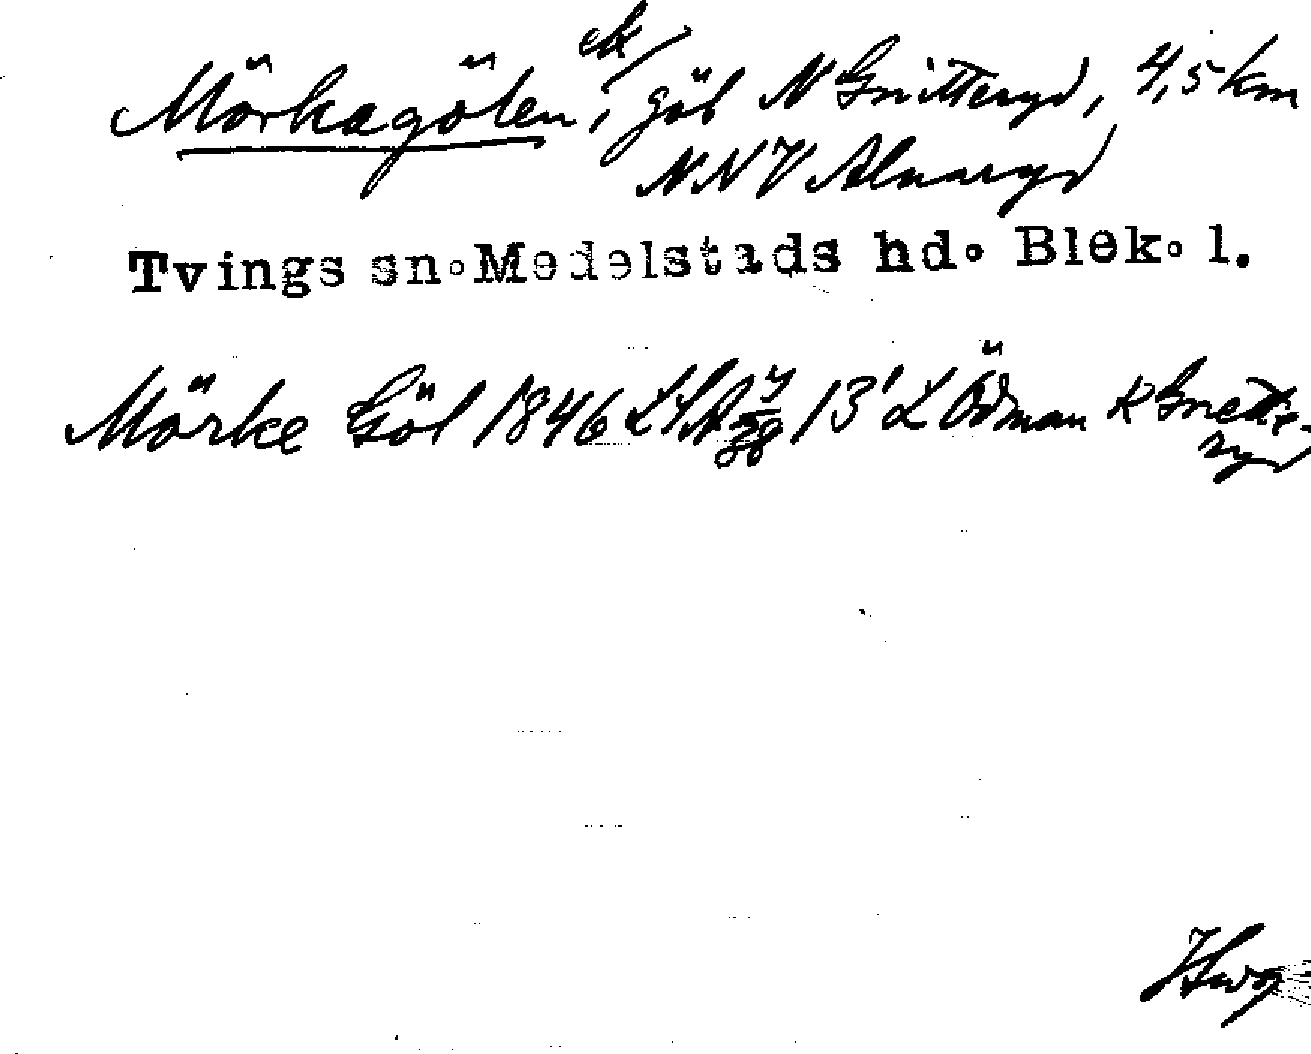 ek/
Mörkagölen, göl N Gnitteryd, 4,5 km
NNV Alnaryd
Tvings sn. Medelstads hd. Blek. l.
Mörke Göl 1846 LSA 13' L Ödman R Gnette-
ryd